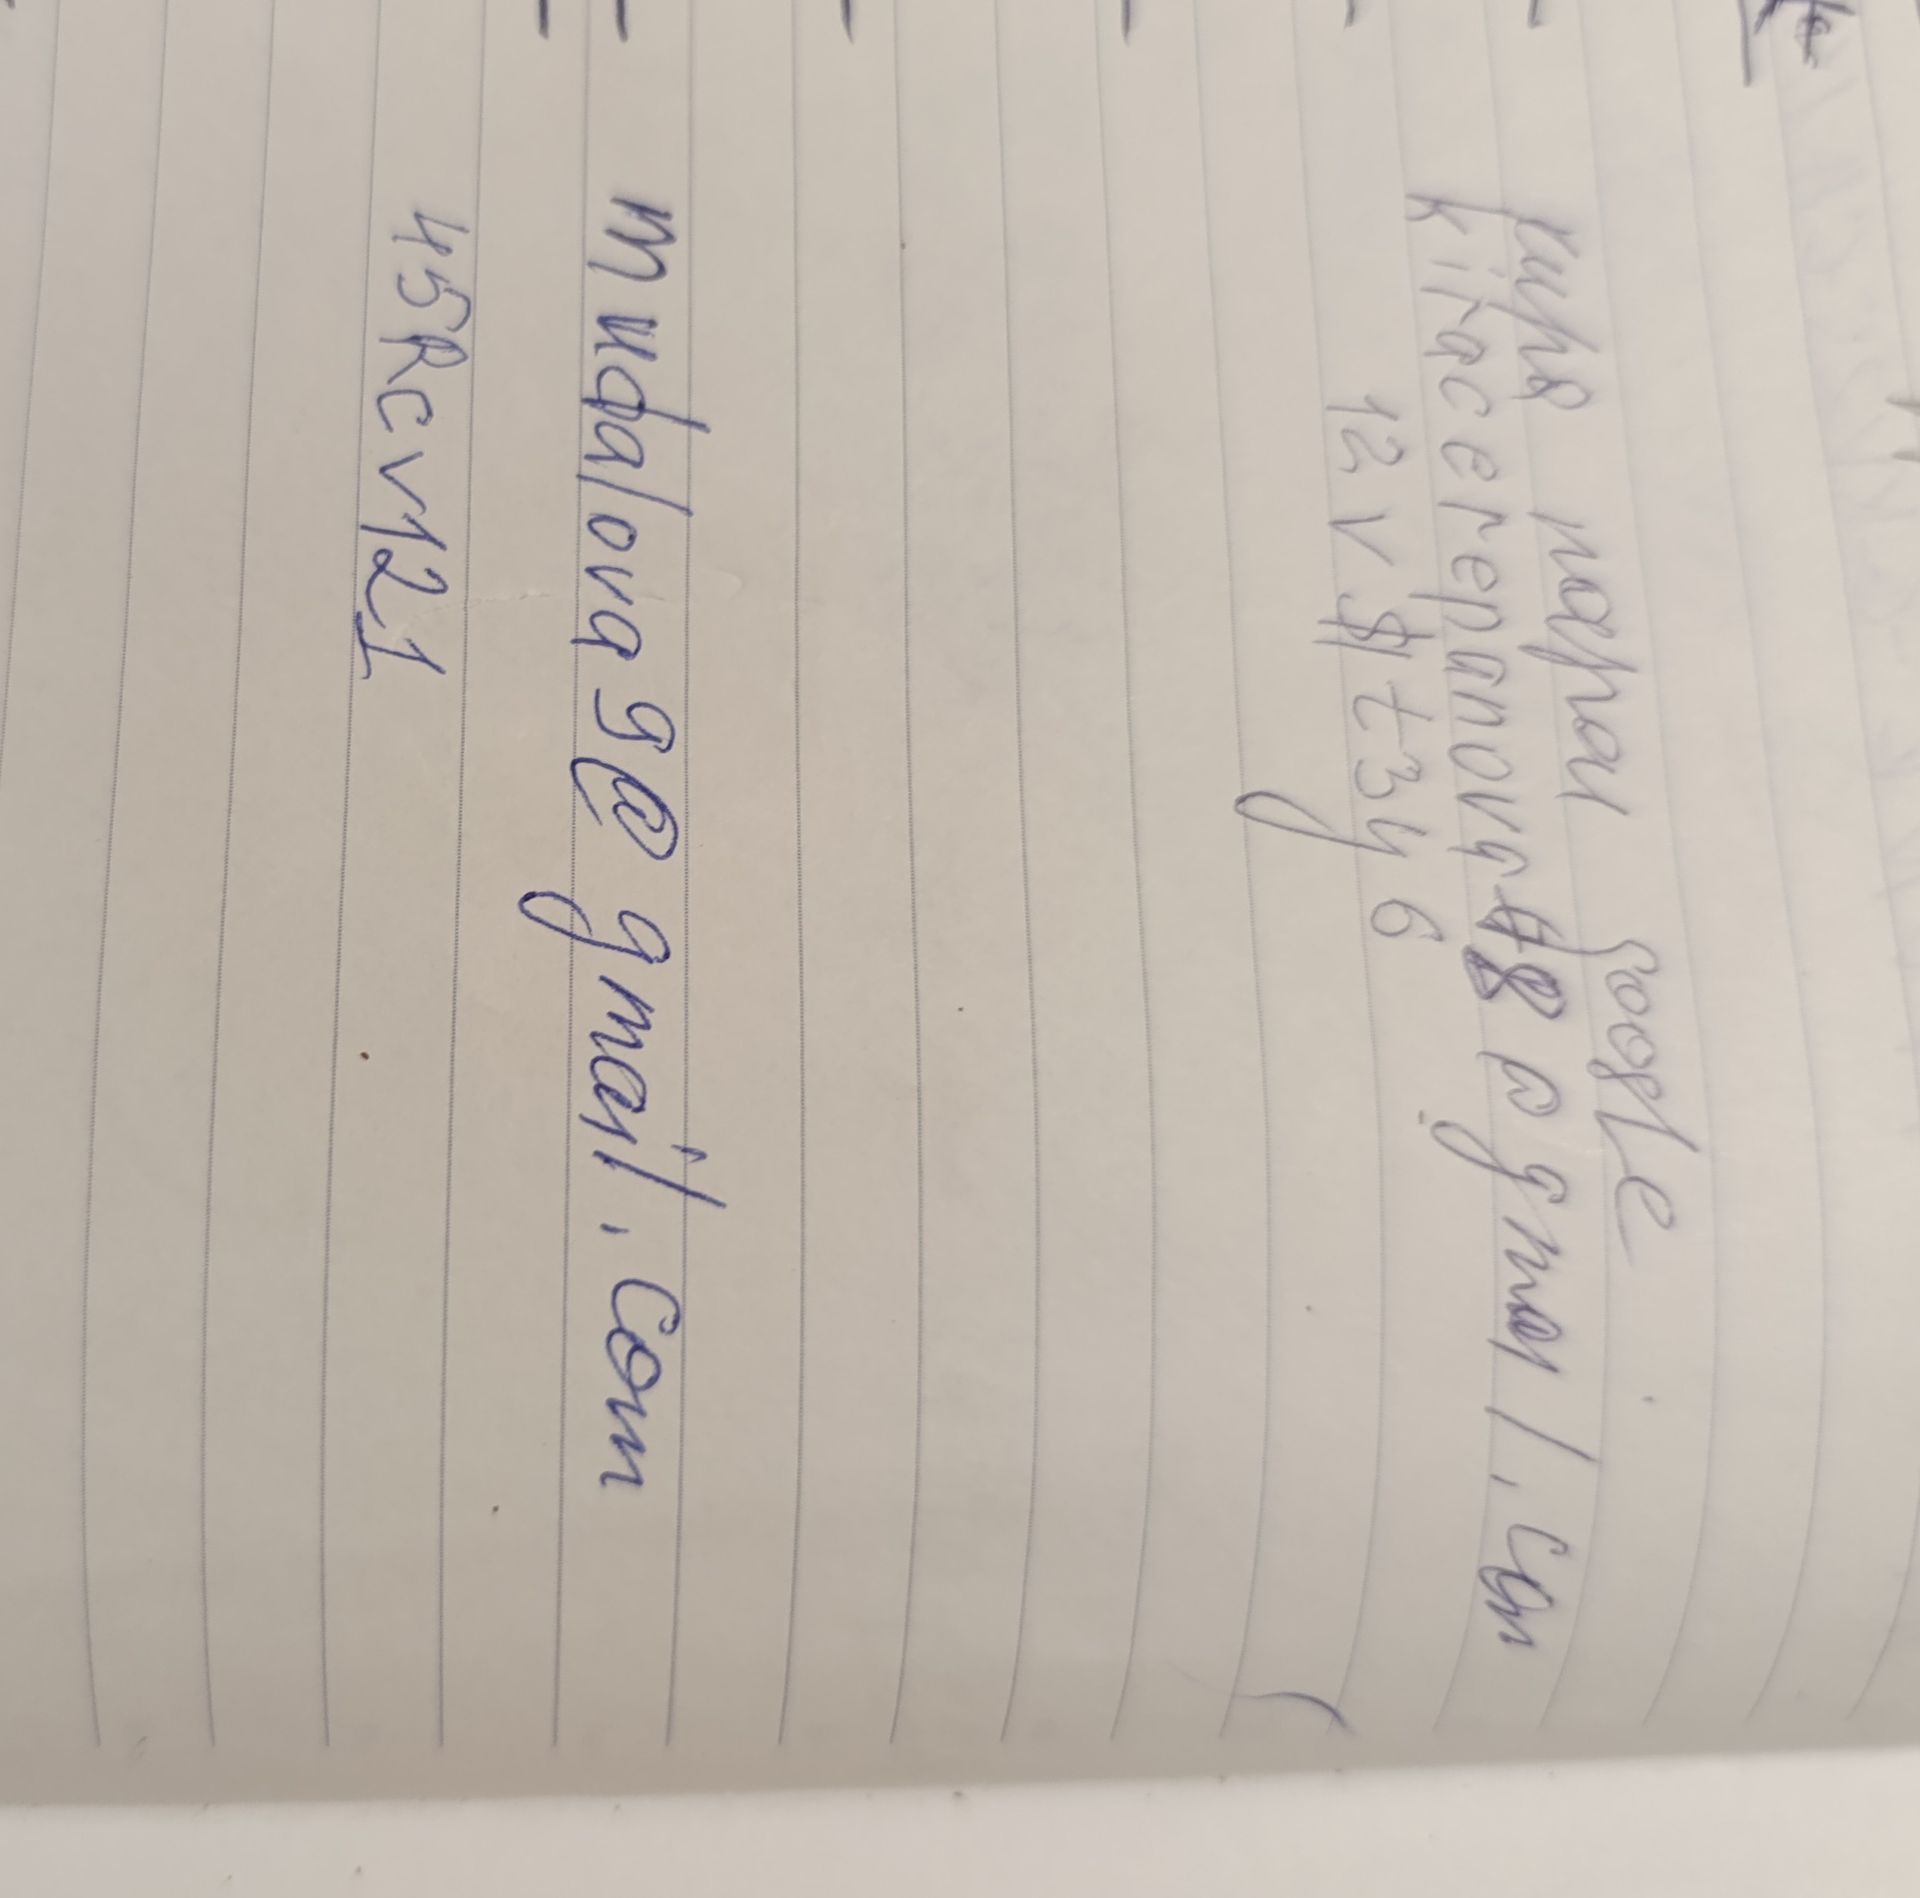 Кира пароли google
kiracerepanova48@gmal.com
12v$t3y6
mudalova9@gmail.com
45Rcv121